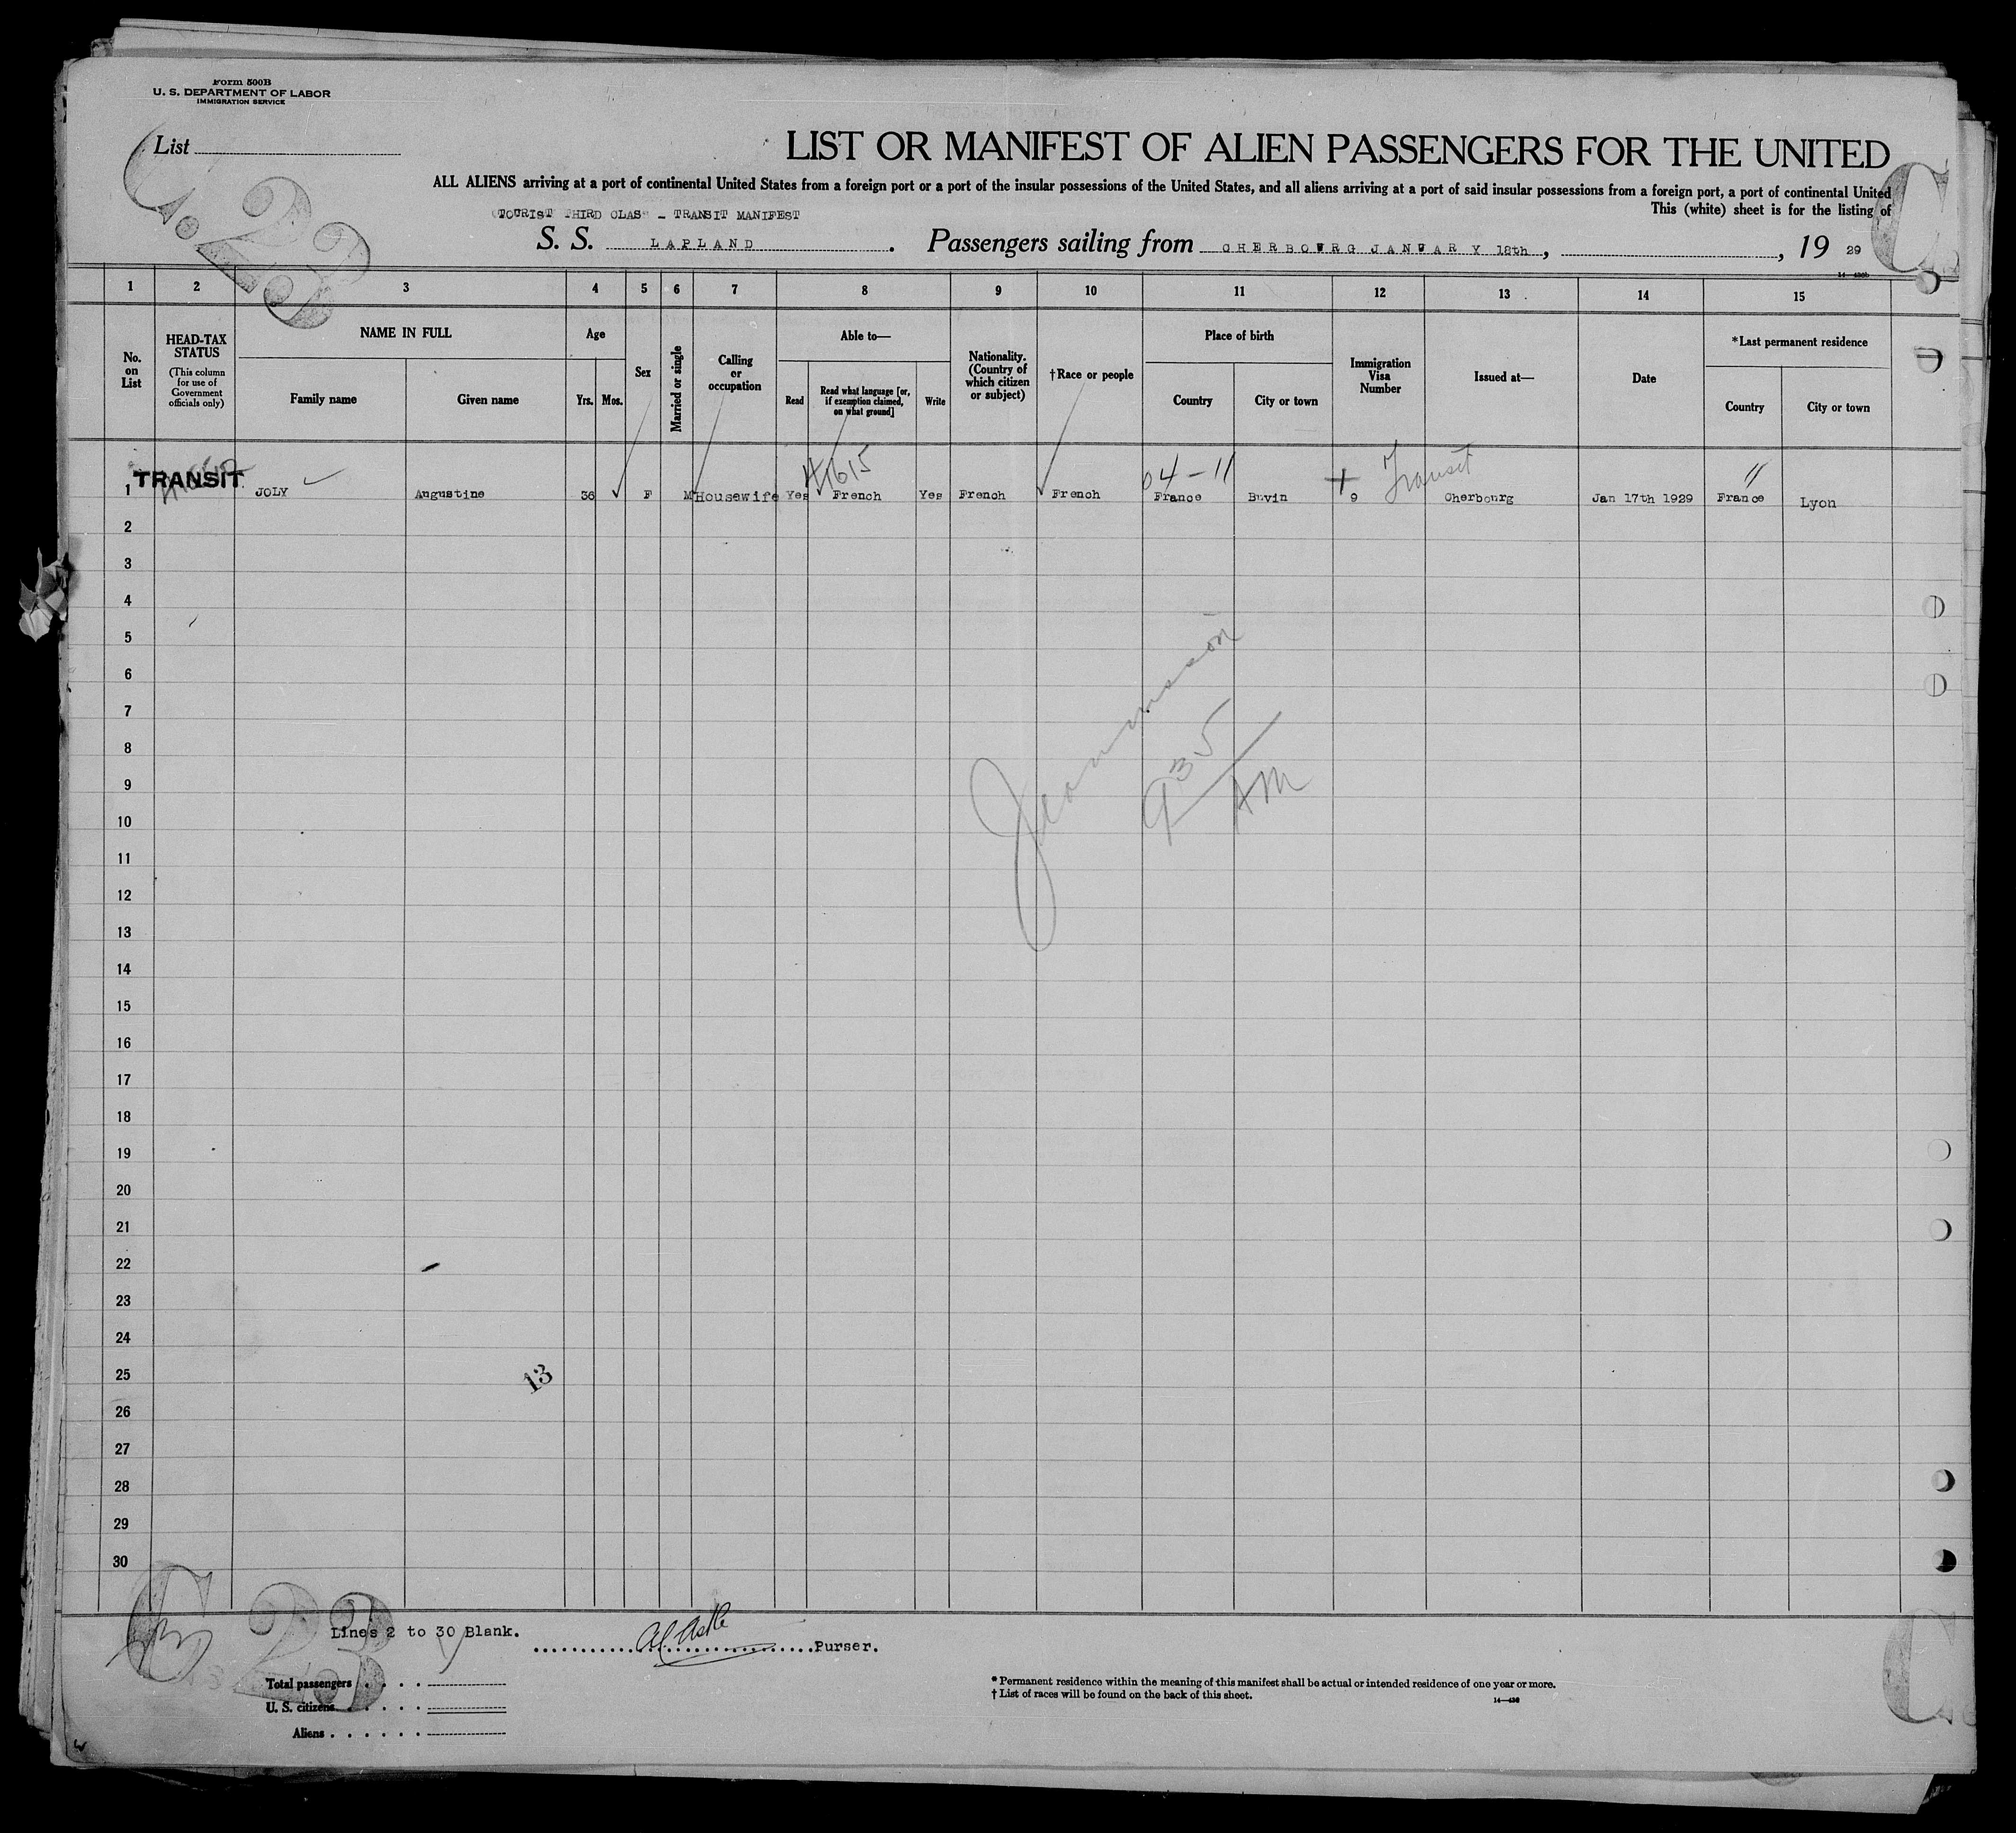 Form 500B
U. S. DEPARTMENT OF LABOR
IMMIGRATION SERVICE
List
C 23
LIST OR MANIFEST OF ALIEN PASSENGERS FOR THE UNITED
ALL ALIENS arriving at a port of continental United States from a foreign port or a port of the insular possessions of the United States, and all aliens arriving at a port of said insular possessions from a foreign port, a port of continental United
This (white) sheet is for the listing of
TOURIST THIRD CLASS - TRANSIT MANIFEST
S. S. LAPLAND. Passengers sailing from CHERBOURG JANUARY 18th, , 19 29
1 2 3 4 5 6 7 8 9 10 11 12 13 14 15
No. on List
HEAD-TAX STATUS
(This column for use of Government officials only)
NAME IN FULL
Family name Given name
Age
Yrs. Mos.
Sex
Married or single
Calling or occupation
Able to—
Read
Read what language [or, if exemption claimed, on what ground]
Write
Nationality. (Country of which citizen or subject)
†Race or people
Place of birth
Country City or town
Immigration Visa Number
Issued at—
Date
*Last permanent residence
Country City or town
1615 04-11 Transit 11
1 TRANSIT JOLY Augustine 36 F M Housewife Yes French Yes French French France 9 Cherbourg Jan 17th 1929 France Lyon
2
3
4
5
6
7
8
9
10
11
12
13
14
15
16
17
18
19
20
21
22
23
24
25
26
27
28
29
30
935 AM
13
C 23
Lines 2 to 30 Blank.
Purser.
Total passengers
U. S. citizens
Aliens
* Permanent residence within the meaning of this manifest shall be actual or intended residence of one year or more.
† List of races will be found on the back of this sheet.